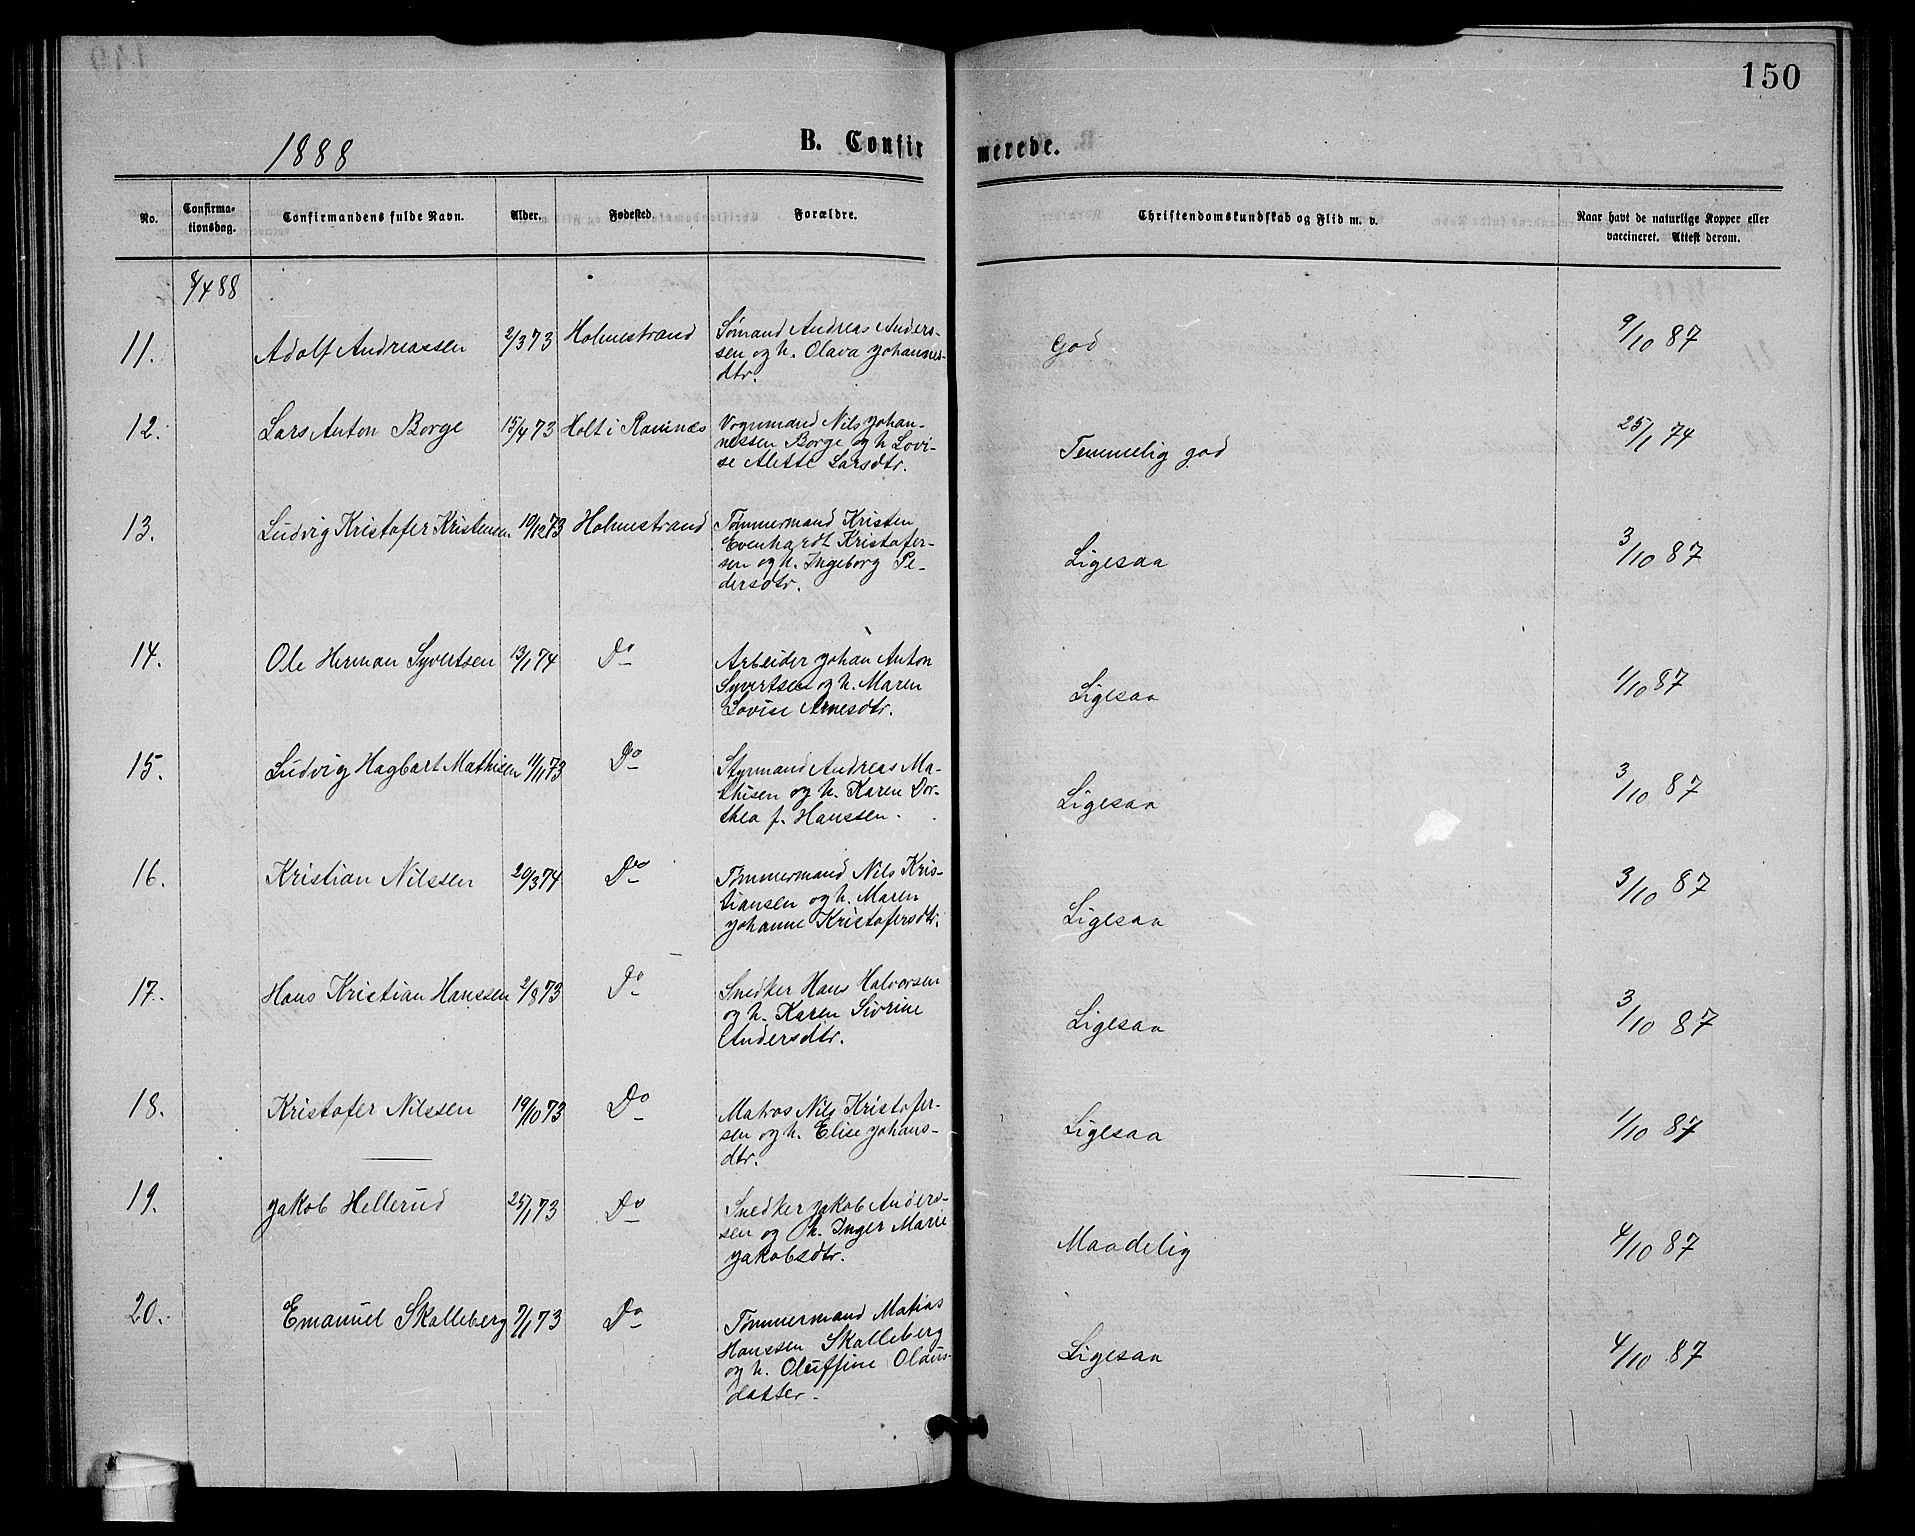 150
1888
B. Confirmerede.
No. Confirmationsdag. Confirmandens fulde Navn. Alder. Fødested. Forældre. Christendomskundskab og Flid m. v. Naar havt de naturlige Kopper eller vaccineret. Attest derom.
8/4 88
11. Adolf Andreassen 2/3 73 Holmestrand Sømand Andreas Anders- God 9/10 87
sen og h. Olava Johannes-
dtr.
12. Lars Anton Borge 15/4 73 Holt i Ramnæs Vognmand Nils Johan- Temmelig god 25/1 74
nessen Borge og h. Lovi-
se Alette Larsdtr.
13. Ludvig Kristofer Kristensen 10/12 73 Holmestrand Tømmermand Kristen Ligesaa 3/10 87
Evenhardt Kristofer-
sen og h. Ingeborg Pe-
dersdtr.
14. Ole Herman Syvertsen 13/1 74 Do Arbeider Johan Anton Ligesaa 1/10 87
Syvertsen og h. Maren
Lovise Arnesdtr.
15. Ludvig Hagbart Mathisen 11/11 73 Do Styrmand Andreas Ma- Ligesaa 3/10 87
thisen og h. Karen Dor-
thea f. Hanssen.
16. Kristian Nilssen 20/3 74 Do Tømmermand Nils Kris- Ligesaa 3/10 87
tiansen og h. Maren
Johanne Kristofersdtr.
17. Hans Kristian Hanssen 2/8 73 Do Snedker Hans Halvorsen Ligesaa 3/10 87
og h. Karen Sivrine
Andersdtr.
18. Kristofer Nilssen 19/10 73 Do Matros Nils Kristofer- Ligesaa 1/10 87
sen og h. Elise Johans-
dtr.
19. Jakob Hellerud 25/1 73 Do Snedker Jakob Anders- Maadelig 4/10 87
sen og h. Inger Marie
Jakobsdtr.
20. Emanuel Skalleberg 7/1 73 Do Tømmermand Matias Ligesaa 4/10 87
Hanssen Skalleberg
og h. Oluffine Olaus-
datter.